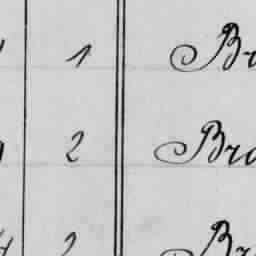 1 Br
2 Bro
2 Br